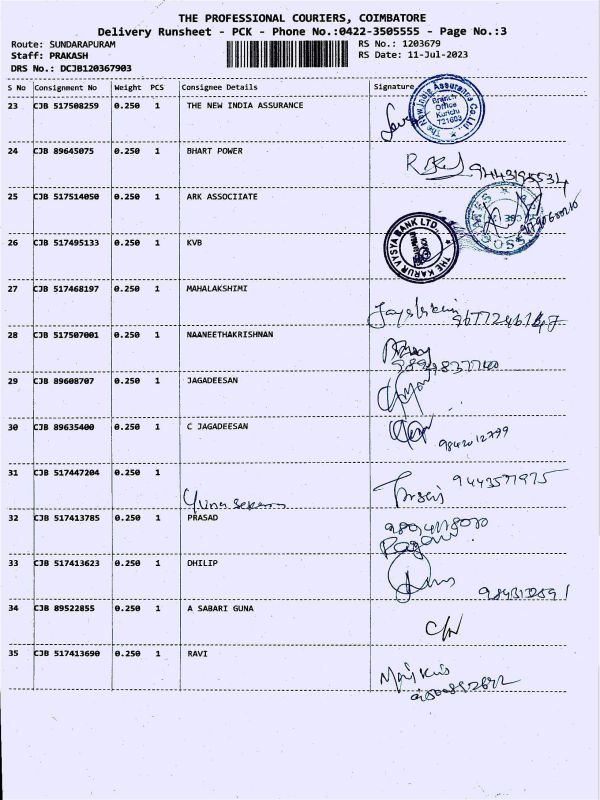 THE PROFESSIONAL COURIERS, COIMBATORE
Delivery Runsheet - PCK - Phone No.:0422-3505555 - Page No.:3
Route: SUNDARAPURAM
RS No.: 1203679
Staff: PRAKASH
RS Date: 11-Jul-2023
DRS No.: DCJB120367903
S No Consignment No Weight PCS Consignee Details Signature
23 CJB 517508259 0.250 1 THE NEW INDIA ASSURANCE
The New India Assurance Co. Ltd.
Branch
Office
Kurichi
721603
24 CJB 89645075 0.250 1 BHART POWER
9443195534
25 CJB 517514050 0.250 1 ARK ASSOCITATE
26 CJB 517495133 0.250 1 KVB
THE KARUR VYSYA BANK LTD.,
27 CJB 517468197 0.250 1 MAHALAKSHIMI
28 CJB 517507001 0.250 1 NAANEETHAKRISHNAN
29 CJB 89608707 0.250 1 JAGADEESAN
30 CJB 89635400 0.250 1 C JAGADEESAN
9842012799
31 CJB 517447204 0.250 1
9443571975
32 CJB 517413785 0.250 1 PRASAD
33 CJB 517413623 0.250 1 DHILIP
34 CJB 89522855 0.250 1 A SABARI GUNA
35 CJB 517413690 0.250 1 RAVI